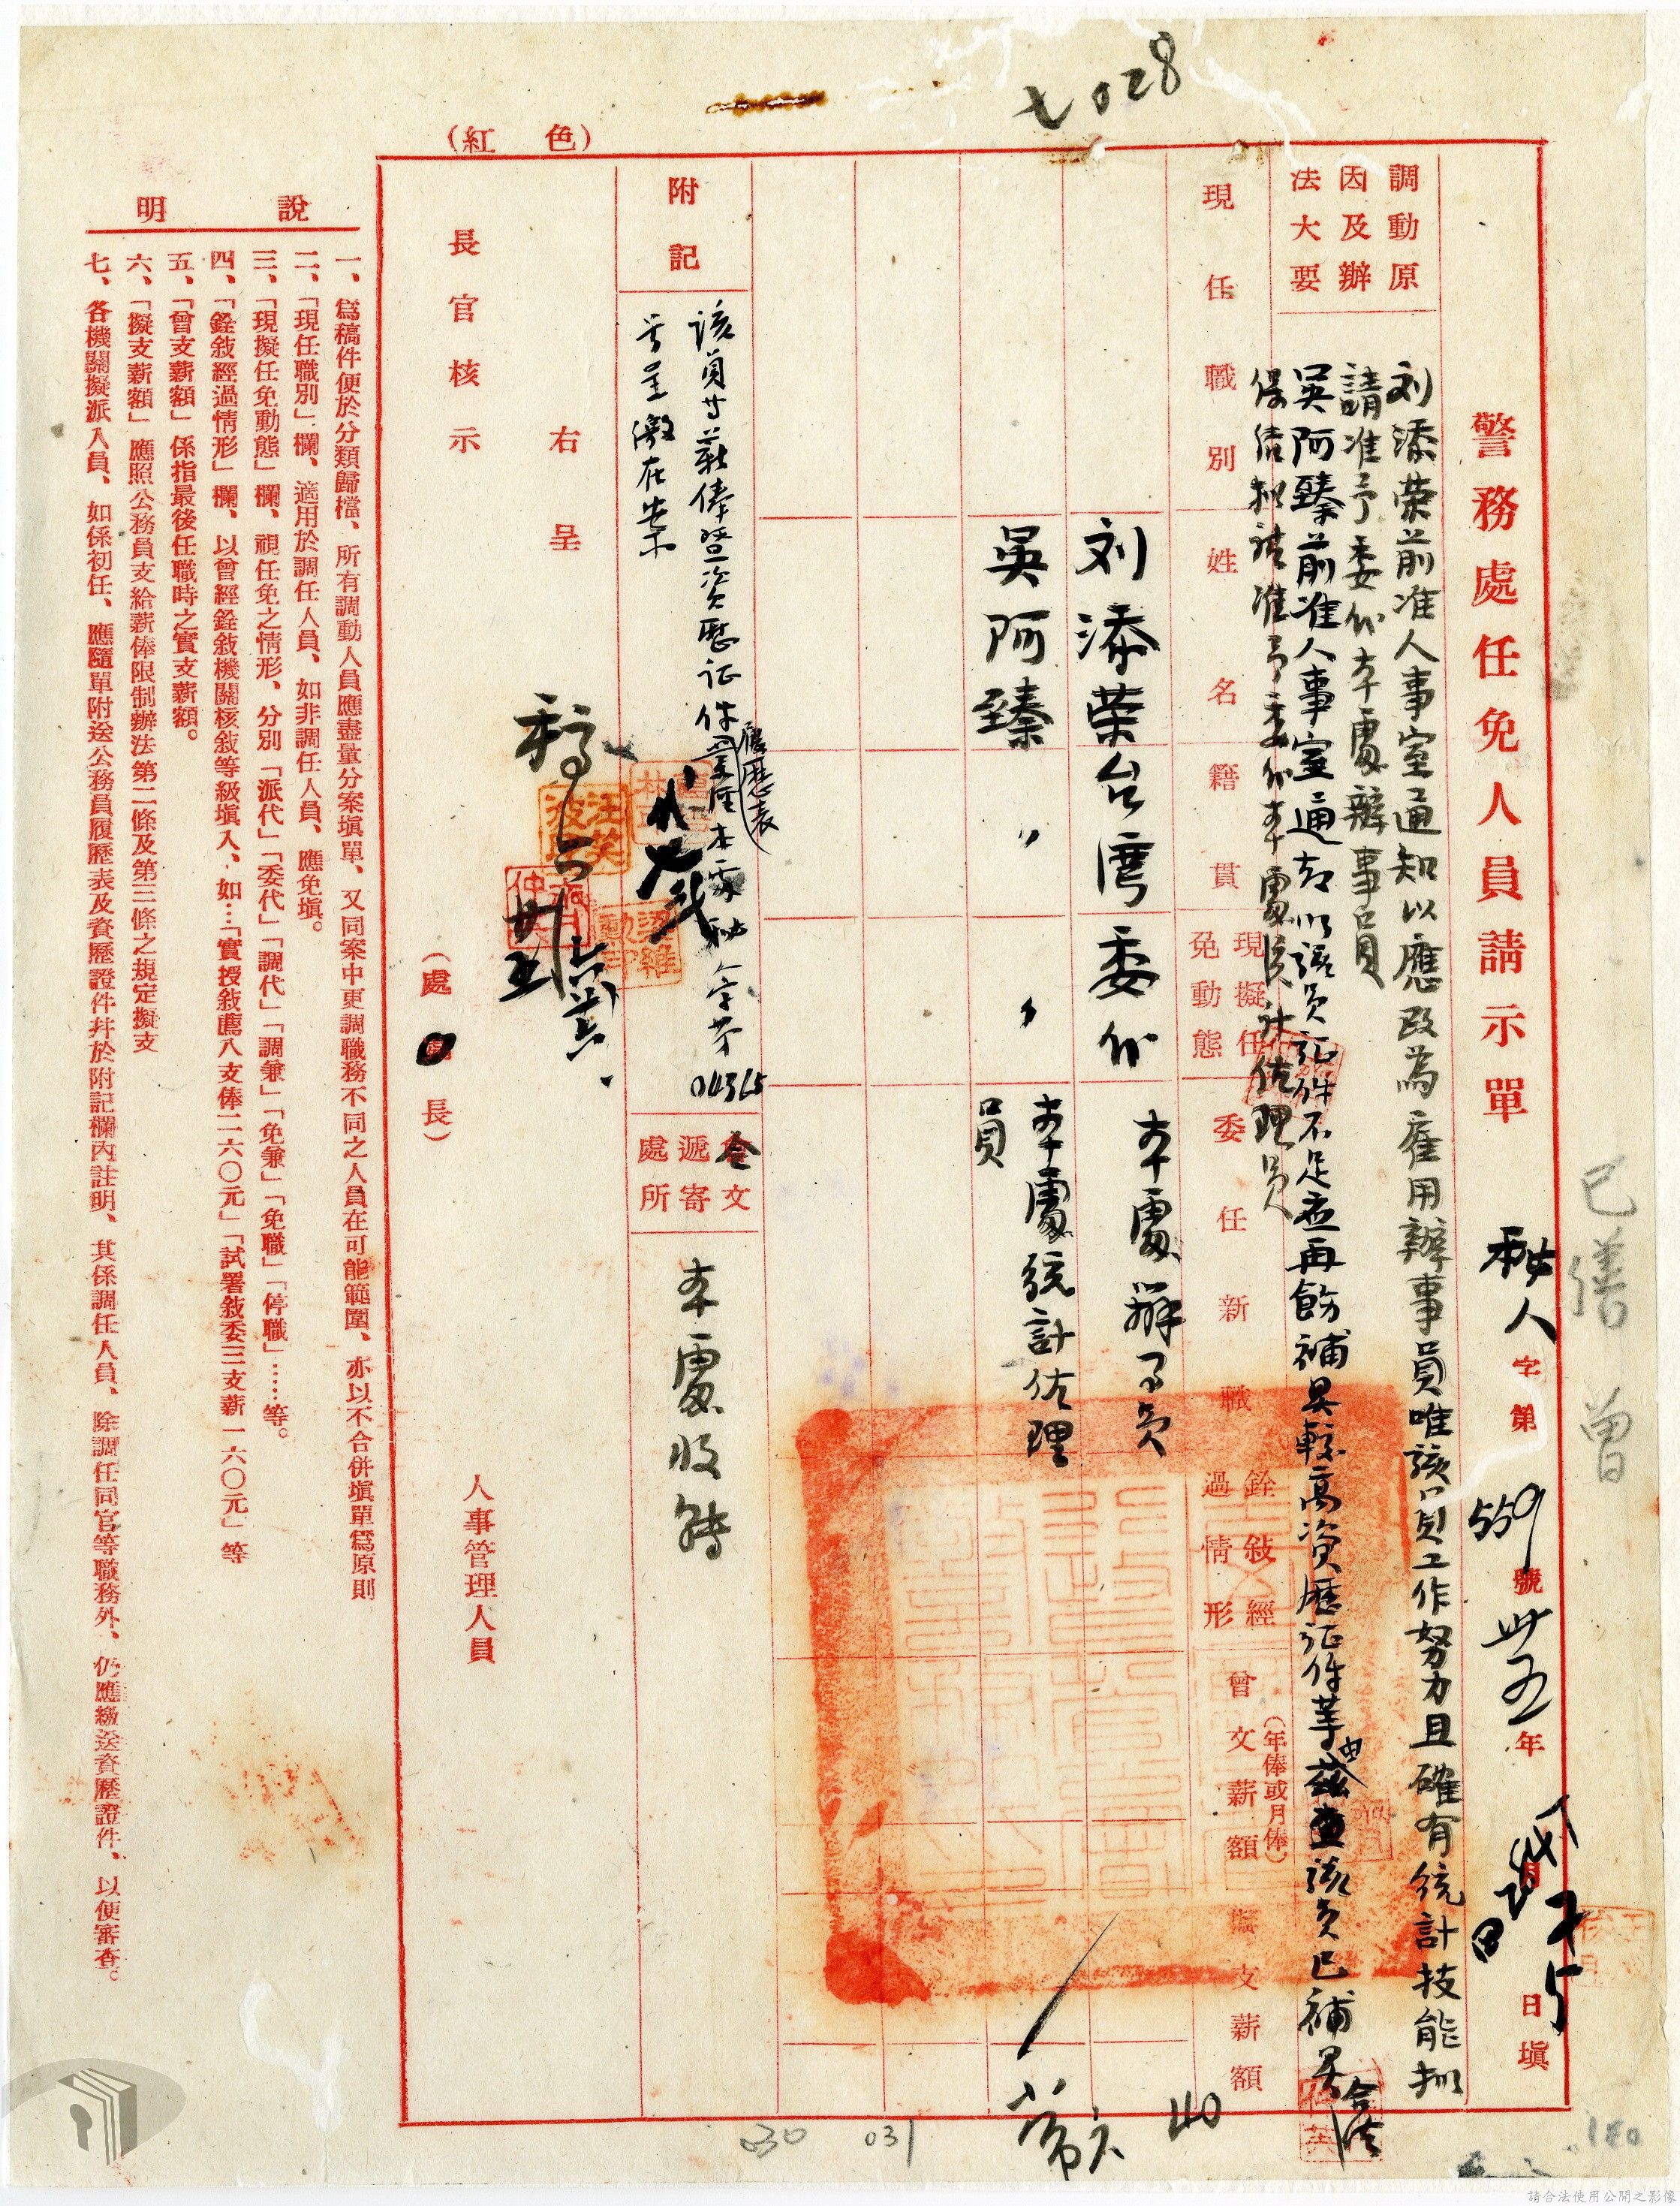 028
(紅色)
警務處任免人員請示單
秘人字第559號
卅五年
月
日填
已繕 曾
調動原因及辦法大要
刘添荣前准人事室通知以應改為雇用辦事員唯該員工作努力且確有統計技能拟
請准予委代本處辦事員
吳阿臻前准人事室通知以該員証件不足並再飭補具較高資歷証件等由茲查該員已補具合法
保結拟請准予委代本處統計佐理員
現任職別
姓名
籍貫
現擬任免動態
委任新職
銓敍經過情形
曾支薪額(年俸或月俸)
擬支薪額
刘添荣
台灣
委代
本處辦事員
吳阿臻
〃
〃
本處統計佐理員
附記
該員廿薪俸暨資歷証件履歷表業經本處秘人字第04365
号呈繳在案
文遞寄處所
本處收轉
右呈
長官核示
稿
(處長)
人事管理人員
說明
一、爲稿件便於分類歸檔、所有調動人員應盡量分案塡單、又同案中更調職務不同之人員在可能範圍、亦以不合併塡單爲原則
二、「現任職別」欄、適用於調任人員、如非調任人員、應免塡。
三、「現擬任免動態」欄、視任免之情形、分別「派代」「委代」「調代」「調兼」「免兼」「免職」「停職」……等。
四、「銓敍經過情形」欄、以曾經銓敍機關核敍等級塡入、如…「實授敍薦八支俸二六〇元」「試署敍委三支薪一六〇元」等
五、「曾支薪額」係指最後任職時之實支薪額。
六、「擬支薪額」應照公務員支給薪俸限制辦法第二條及第三條之規定擬支
七、各機關擬派人員、如係初任、應隨單附送公務員履歷表及資歷證件幷於附記欄內註明、其係調任人員、除調任同官等職務外、仍應繳送資歷證件、以便審查。
030
031
140
180
請合法使用公開之影像